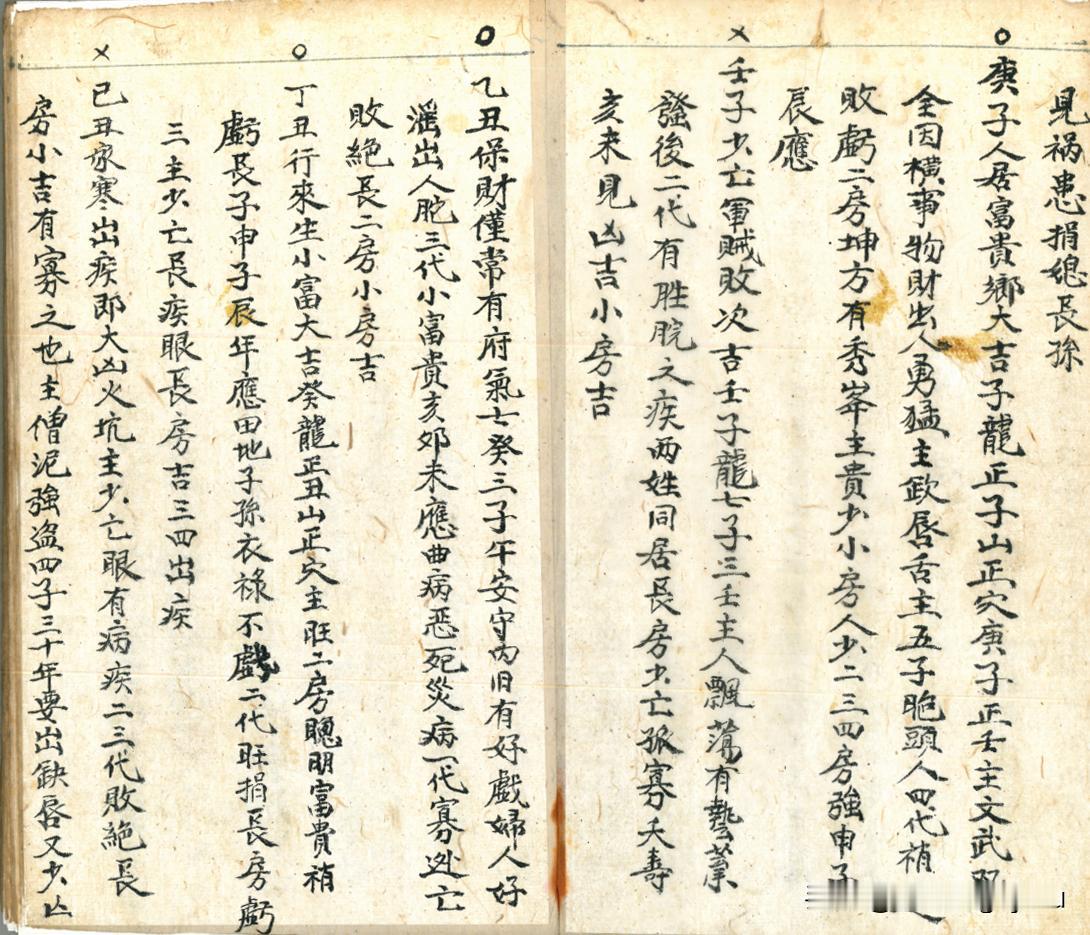 見禍患捐媳長孫
○
庚子人居富貴鄉大吉子龍正子山正穴庚子正壬主文武双
全因橫事物財出人勇猛主欽唇舌主五子胞頭人四代稍
敗虧二房坤方有秀峯主貴少小房人少二三四房強申子
辰應
×
壬子少亡軍賊敗次吉壬子龍七子三壬主人飄蕩有藝業
發後二代有胜脘之疾両姓同居長房少亡孤寡夭壽
亥未見凶吉小房吉
○
乙丑保財僅常有府氣士癸三子午安守內旧有好戲婦人好
滛出人腔三代小富貴亥夘未應曲病恶死災病一代寡逃亡
敗絕長二房小房吉
○
丁丑行來生小富大吉癸龍正丑山正穴主旺二房聰明富貴稍
虧長子申子辰年應田地子孫衣祿不戲二代旺捐長房虧
三主少亡長疾眼長房吉三四出疾
×
已丑家寒出疾即大凶火坑主少亡眼有病疾二三代敗絕長
房小吉有寡之也主僧泥強盜四子三十年要出缺唇又少亾